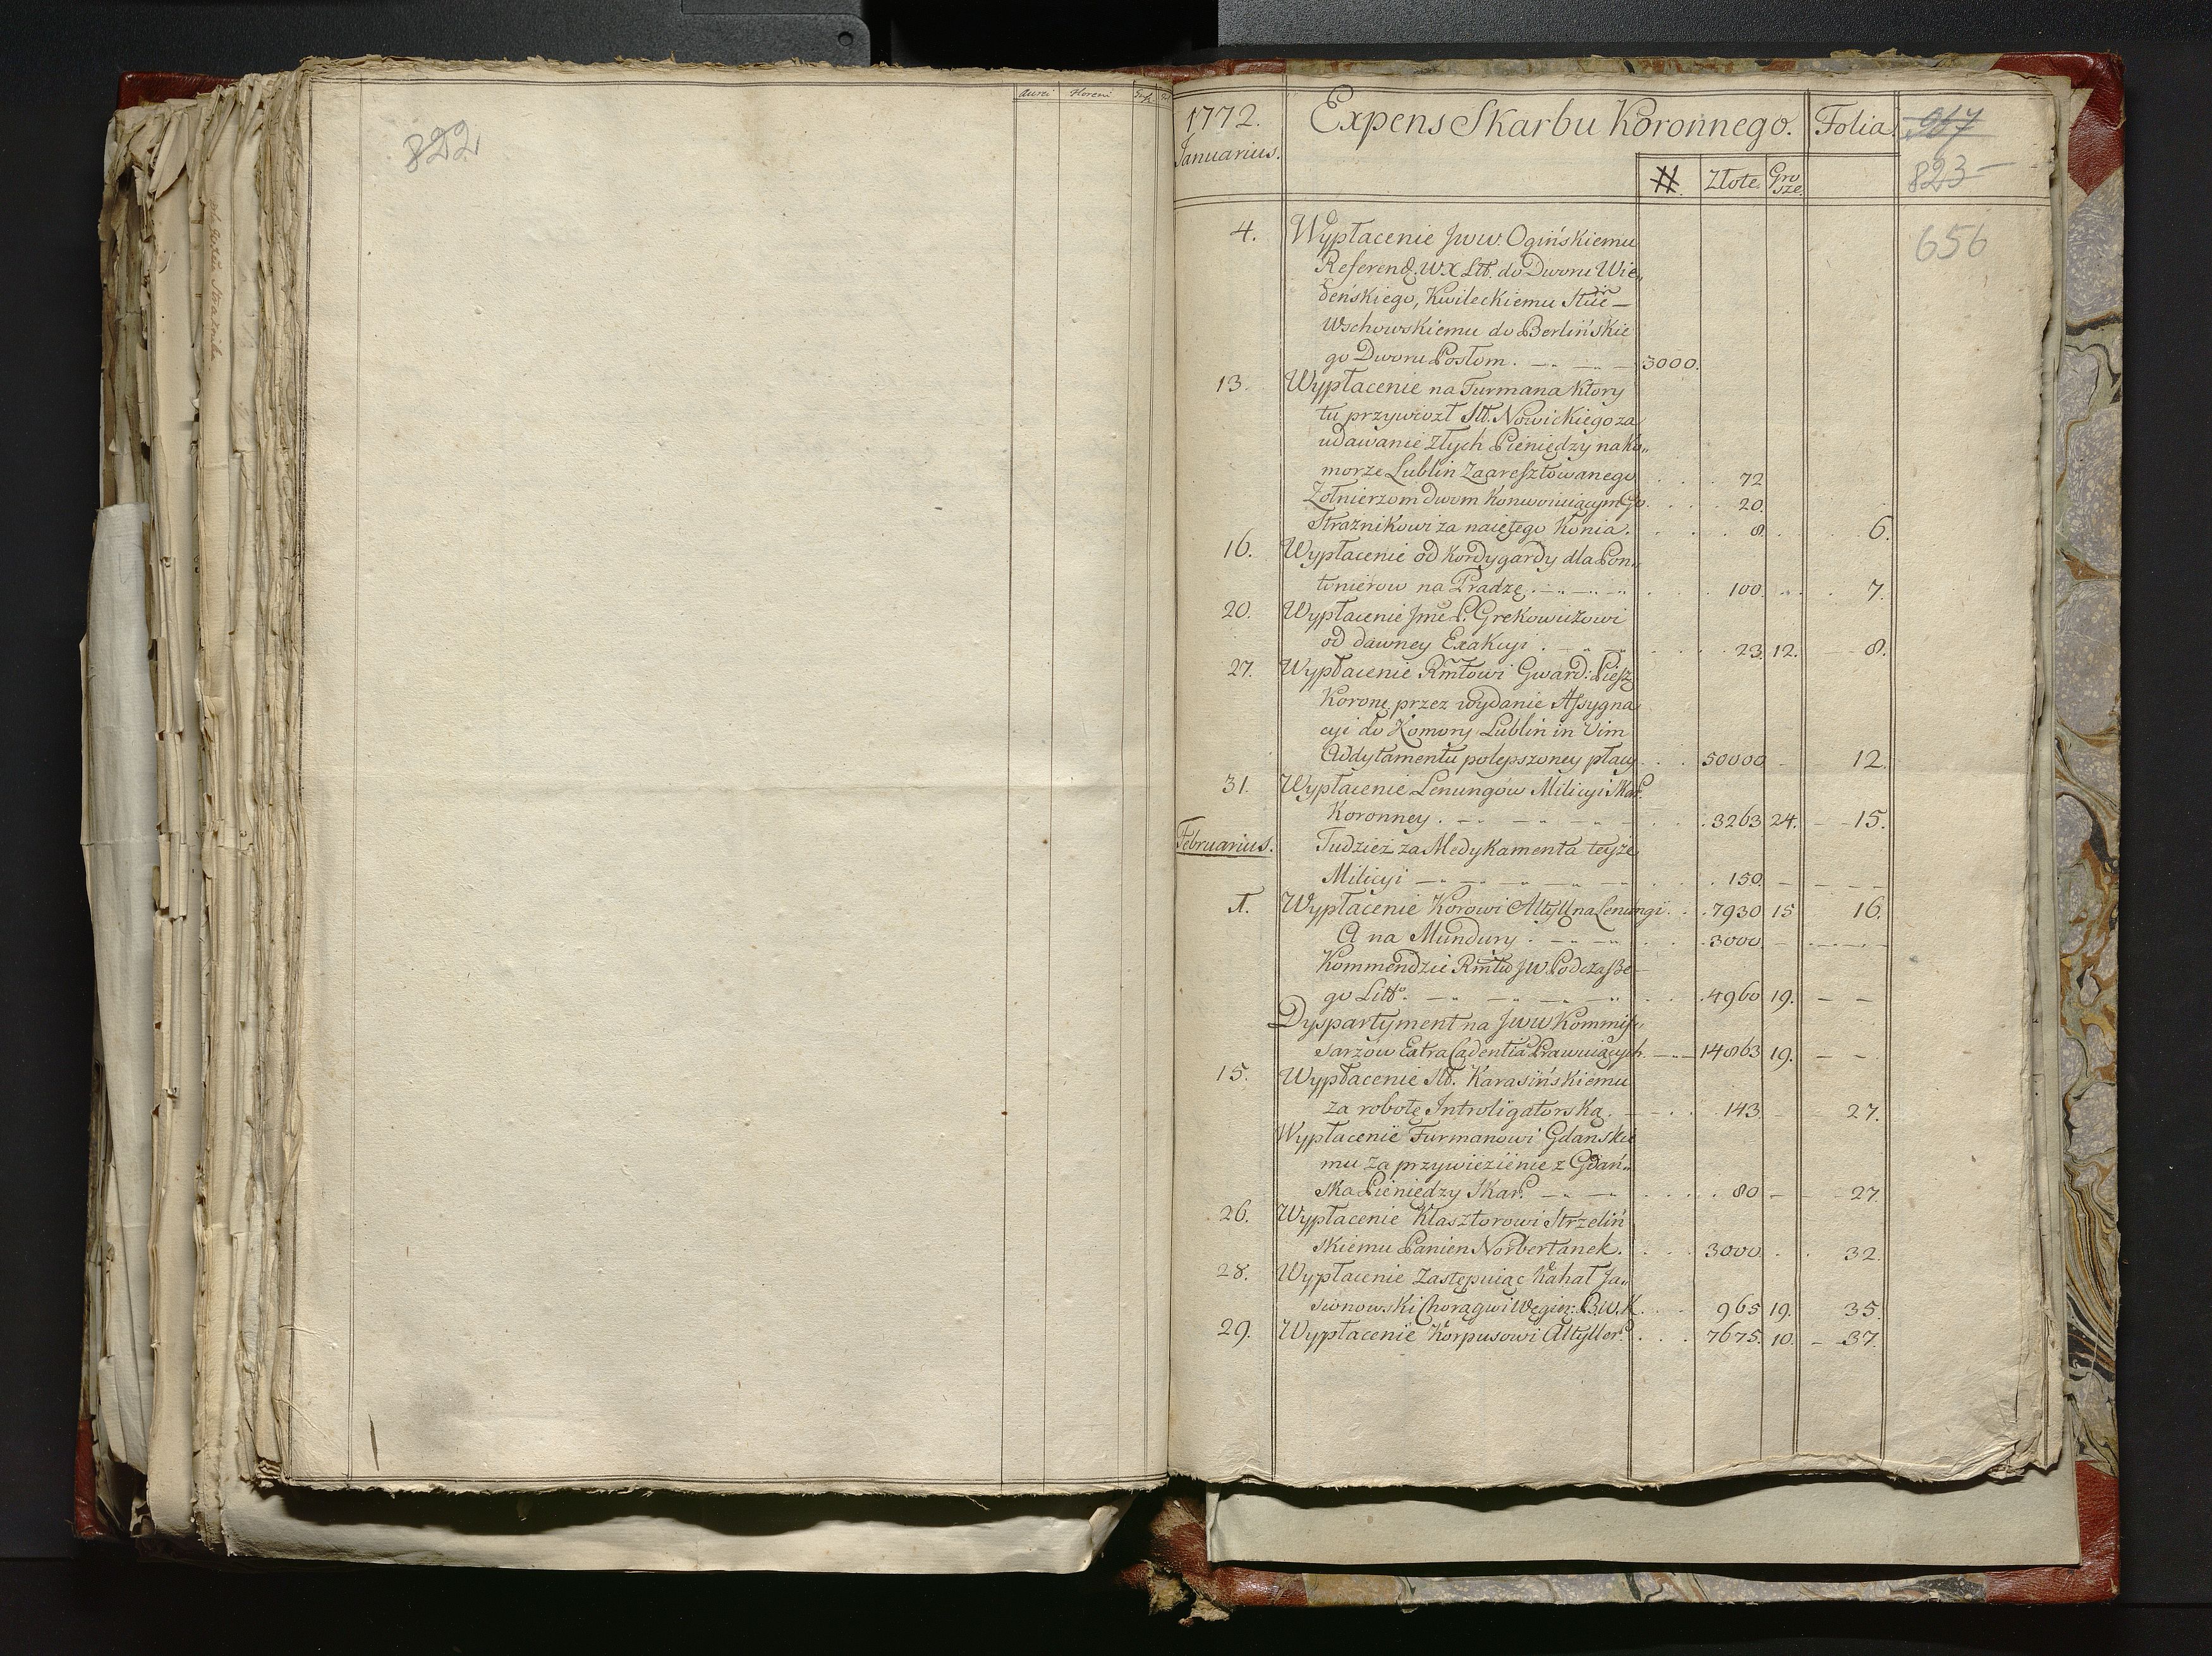 822
Aurei Floreni
1772. Expens Skarbu Koronnego. Folia 967
Januarius.
# Złote. Grosze. 823
656
4. Wypłacenie Jww. Ogińskiemu
Referend. WX Litt. do Dworu Wie„
deńskiego, Kwileckiemu Stcie
Wschowskiemu do Berlińskie
go Dworu Posłom. 3000.
13. Wypłacenie na Furmana Ktory
tu przywiozł Stt. Nowickiego za
udawanie Złych Pieniędzy na Ko„
morze Lublin Zaaresztowanego 72
Zołnierzom dwom Konwoiuiącym Go 20.
Straznikowi za naiętego Konia. 8 6.
16. Wypłacenie od Kordygardy dla Pon„
tonierow na Pradze. 100. 7.
20. Wypłacenie Jmć P. Grekowiczowi
od dawney Exakcyi. 23. 12. 8.
27. Wypłacenie Rmtowi Gward: Piesz
Koronę przez wydanie Assygna
cyi do Komory Lublin in Vim
Addytamentu polepszoney płacy 50000 12.
31. Wypłacenie Lenungów Milicyi Skar.
Koronney. 3263 24. 15.
Februarius. Tudzież za Medykamenta teyże
Milicyi 150
1. Wypłacenie Korowi Altyll na Lenungi. 7930 15 16.
A na Mundury. 3000.
Kommendzie Rmtu JW. Podczasze-
go Litto. 4960 19.
Dyspartyment na Jww Kommis„
sarzów Extra Cadentia Prawuiących 14863 19.
15. Wypłacenie Stt. Karasińskiemu
za robotę Introligatorską. 143 27.
Wypłacenie Furmanowi Gdańskie
mu za przywiezienie z Gdań„
ska Pieniędzy Skar. 80 27.
26. Wypłacenie Klasztorowi Strzeliń
skiemu Panien Norbertanek. 3000. 32.
28. Wypłacenie Zastępuiąc Kahał Ja„
sionowski Chorągwi Węgier: B.W.K. 965 19. 35.
29. Wypłacenie Korpusowi Altyller. 7675. 10. 37.